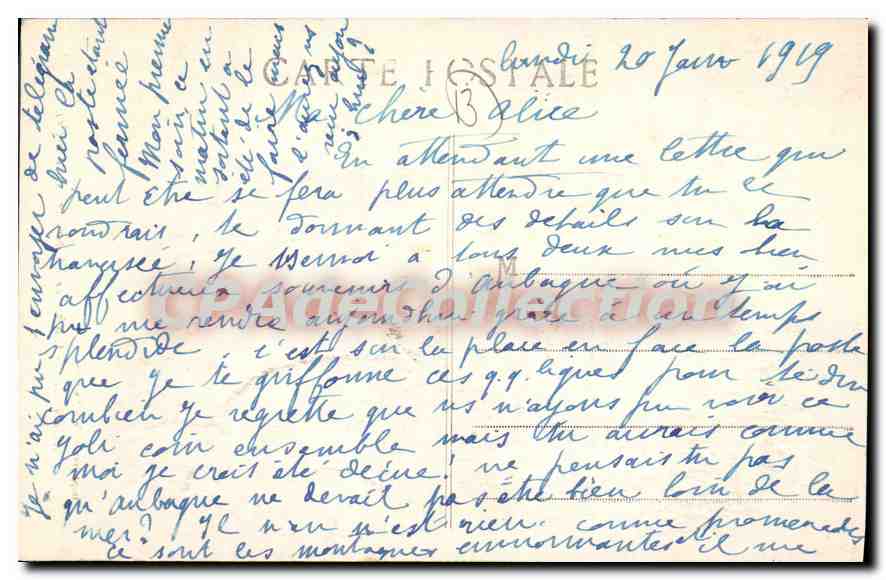 CARTE POSTALE
lundi 20 Janv 1919
13
Ma chère Alice
En attendant une lettre qui
peut être se fera plus attendre que tu ne
voudrais, te donnant des details sur la
traversée, je denvoi a tous deux mes bien
affectueux souvenirs d'Aubagne où j'ai
pu me rendre aujourd'hui grâce à un temps
splendide, c'est sur la place en face la poste
que je te griffonne ces q.q. lignes pour te dire
combien je regrette que ns n'ayons pu voir ce
joli coin ensemble mais tu aurais comme
moi je crois été déçue! ne pensais tu pas
qu'aubagne ne devait pas être bien loin de la
mer? Il n'en n'est rien. comme promenades
ce sont les montagnes environnantes il me
Je n'ai pu t'envoyer de télégram
hier la
poste étant
fermée
Mon premier
soin ce
matin en
sortant a
été de le
faire
M
CPAdeCollection